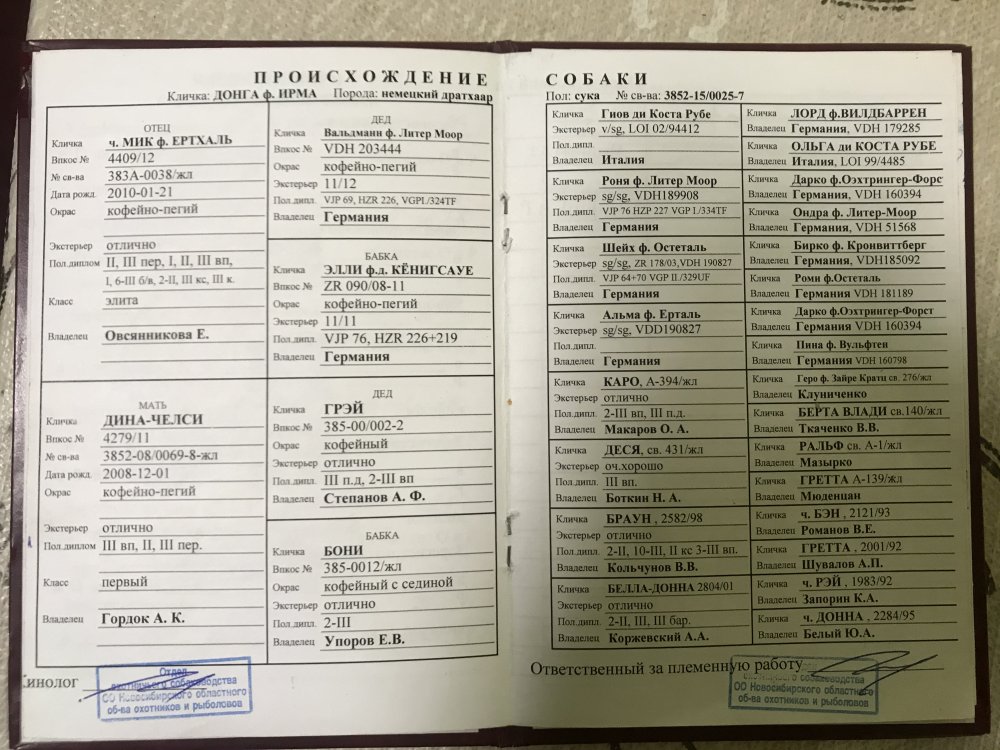 ПРОИСХОЖДЕНИЕ
Кличка: ДОНГА ф. ИРМА Порода: немецкий дратхаар
ОТЕЦ
Кличка ч. МИК ф. ЕРТХАЛЬ
Впкос № 4409/12
№ св-ва 383А-0038/жл
Дата рожд. 2010-01-21
Окрас кофейно-пегий
Экстерьер отлично
Пол.диплом II, III пер, I, II, III вп,
I, 6-III б/в, 2-II, III кс, III к.
Класс элита
Владелец Овсянникова Е.
МАТЬ
Кличка ДИНА-ЧЕЛСИ
Впкос № 4279/11
№ св-ва 3852-08/0069-8-жл
Дата рожд. 2008-12-01
Окрас кофейно-пегий
Экстерьер отлично
Пол.диплом III вп, II, III пер.
Класс первый
Владелец Гордок А. К.
ДЕД
Кличка Вальдманн ф. Литер Моор
Впкос № VDH 203444
Окрас кофейно-пегий
Экстерьер 11/12
Пол.дипл. VJP 69, HZR 226, VGPI./324TF
Владелец Германия
БАБКА
Кличка ЭЛЛИ ф.д. КЁНИГСАУЕ
Впкос № ZR 090/08-11
Окрас кофейно-пегий
Экстерьер 11/11
Пол.дипл. VJP 76, HZR 226+219
Владелец Германия
ДЕД
Кличка ГРЭЙ
Впкос № 385-00/002-2
Окрас кофейный
Экстерьер отлично
Пол.дипл. III п.д, 2-III вп
Владелец Степанов А. Ф.
БАБКА
Кличка БОНИ
Впкос № 385-0012/жл
Окрас кофейный с сединой
Экстерьер отлично
Пол.дипл. 2-III
Владелец Упоров Е.В.
инолог
Отдел
охотничьего собаководства
ОО Новосибирского областного
об-ва охотников и рыболовов
СОБАКИ
Пол: сука № св-ва: 3852-15/0025-7
Кличка Гиов ди Коста Рубе
Экстерьер v/sg, LOI 02/94412
Пол.дипл.
Владелец Италия
Кличка Роня ф. Литер Моор
Экстерьер sg/sg, VDH189908
Пол.дипл. VJP 76 HZP 227 VGP I./334TF
Владелец Германия
Кличка Шейх ф. Остеталь
Экстерьер sg/sg, ZR 178/03,VDH 190827
Пол.дипл. VJP 64+70 VGP II./329UF
Владелец Германия
Кличка Альма ф. Ерталь
Экстерьер sg/sg, VDD190827
Пол.дипл.
Владелец Германия
Кличка КАРО, А-394/жл
Экстерьер отлично
Пол.дипл. 2-III вп, III п.д.
Владелец Макаров О. А.
Кличка ДЕСЯ, св. 431/жл
Экстерьер оч.хорошо
Пол.дипл. III вп.
Владелец Боткин Н. А.
Кличка БРАУН , 2582/98
Экстерьер отлично
Пол.дипл. 2-II, 10-III, II кс 3-III вп.
Владелец Кольчунов В.В.
Кличка БЕЛЛА-ДОННА 2804/01
Экстерьер отлично
Пол.дипл. 2-II, III, III бар.
Владелец Коржевский А.А.
Кличка ЛОРД ф.ВИЛДБАРРЕН
Владелец Германия, VDH 179285
Кличка ОЛЬГА ди КОСТА РУБЕ
Владелец Италия, LOI 99/4485
Кличка Дарко ф.Оэхтрингер-Форс
Владелец Германия, VDH 160394
Кличка Ондра ф. Литер-Моор
Владелец Германия, VDH 51568
Кличка Бирко ф. Кронвиттберг
Владелец Германия, VDH185092
Кличка Роми ф.Остеталь
Владелец Германия VDH 181189
Кличка Дарко ф.Оэхтрингер-Форст
Владелец Германия VDH 160394
Кличка Пина ф. Вульфтен
Владелец Германия VDH 160798
Кличка Геро ф. Зайре Кратц св. 276/жл
Владелец Клуниченко
Кличка БЕРТА ВЛАДИ св.140/жл
Владелец Ткаченко В.В.
Кличка РАЛЬФ св. А-1/жл
Владелец Мазырко
Кличка ГРЕТТА А-139/жл
Владелец Мюденцан
Кличка ч. БЭН , 2121/93
Владелец Романов В.Е.
Кличка ГРЕТТА , 2001/92
Владелец Шувалов А.П.
Кличка ч. РЭЙ , 1983/92
Владелец Запорин К.А.
Кличка ч. ДОННА , 2284/95
Владелец Белый Ю.А.
Ответственный за племенную работу
охотничьего собаководства
ОО Новосибирского областного
об-ва охотников и рыболовов